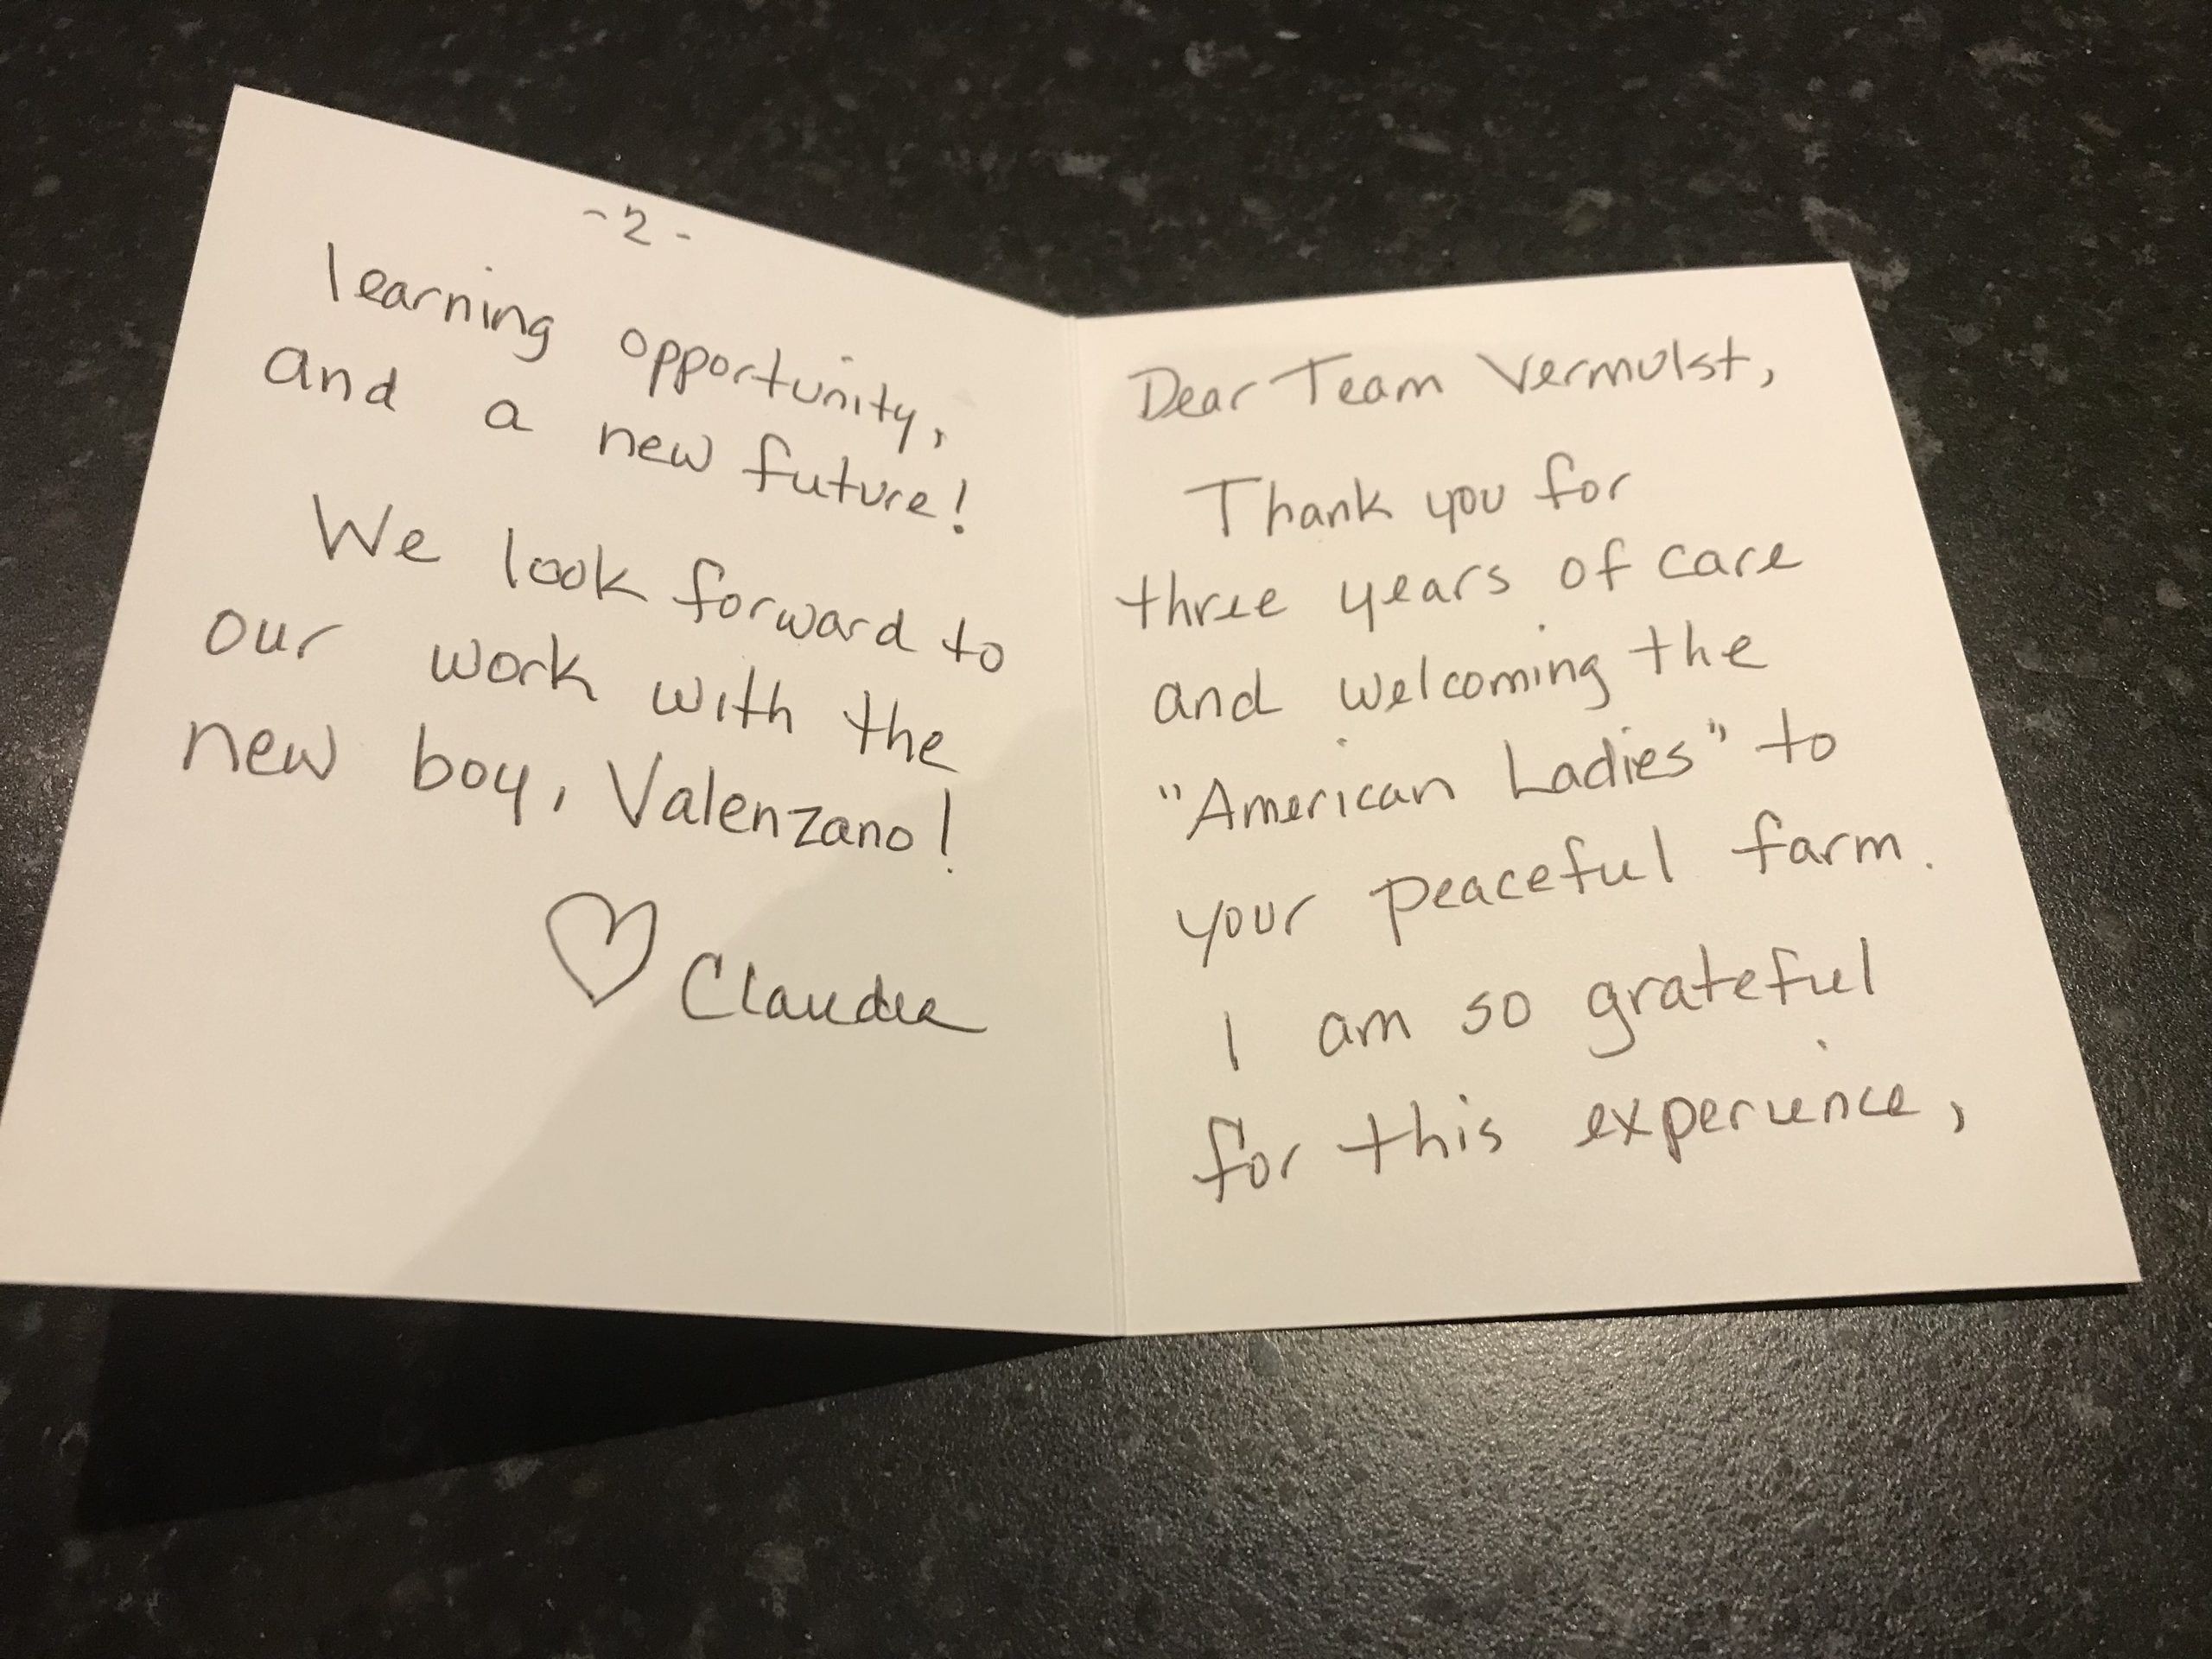 Dear Team Vermulst,
Thank you for
three years of care
and welcoming the
"American Ladies" to
your peaceful farm.
I am so grateful
for this experience,
-2-
learning opportunity,
and a new future!
We look forward to
our work with the
new boy, Valenzano!
♡ Claudia